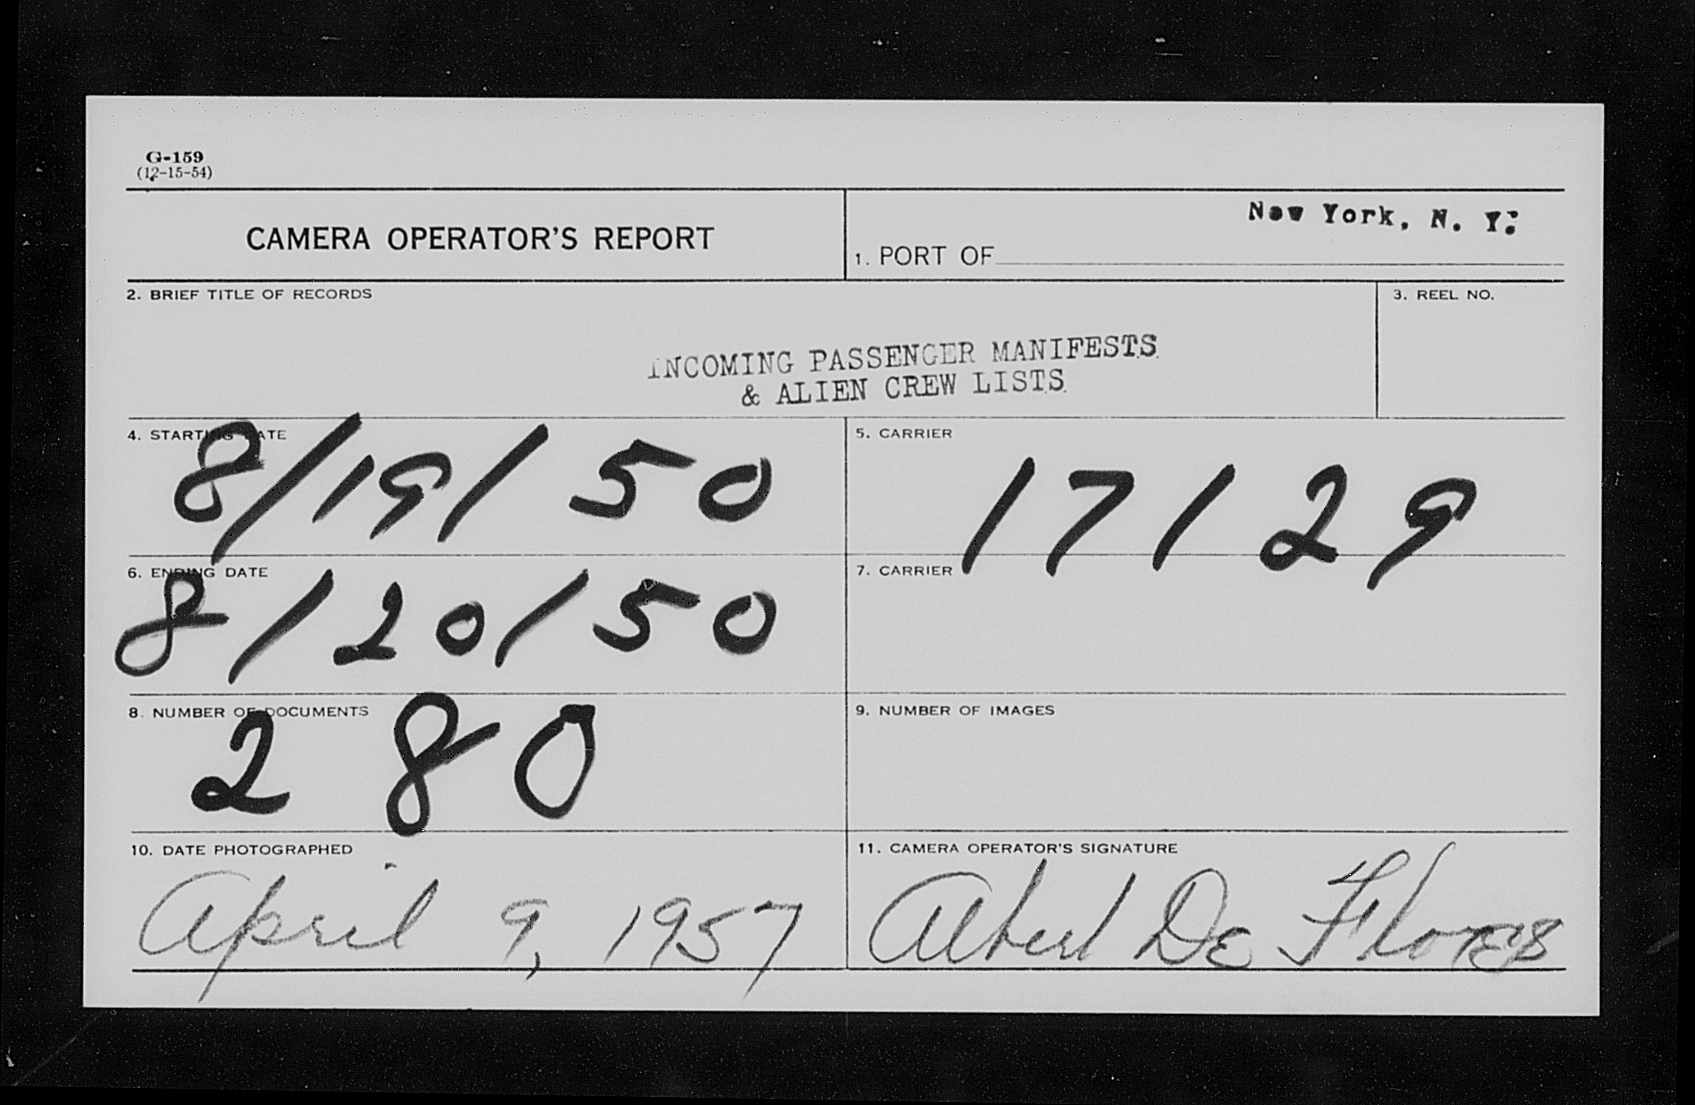 G-159
(12-15-54)
CAMERA OPERATOR'S REPORT
New York, N. Y.
1. PORT OF
2. BRIEF TITLE OF RECORDS
3. REEL NO.
INCOMING PASSENGER MANIFESTS
& ALIEN CREW LISTS
4. STARTING DATE
8/19/50
5. CARRIER
17129
6. ENDING DATE
8/20/50
7. CARRIER
8. NUMBER OF DOCUMENTS
280
9. NUMBER OF IMAGES
10. DATE PHOTOGRAPHED
April 9, 1957
11. CAMERA OPERATOR'S SIGNATURE
Albert De Flores